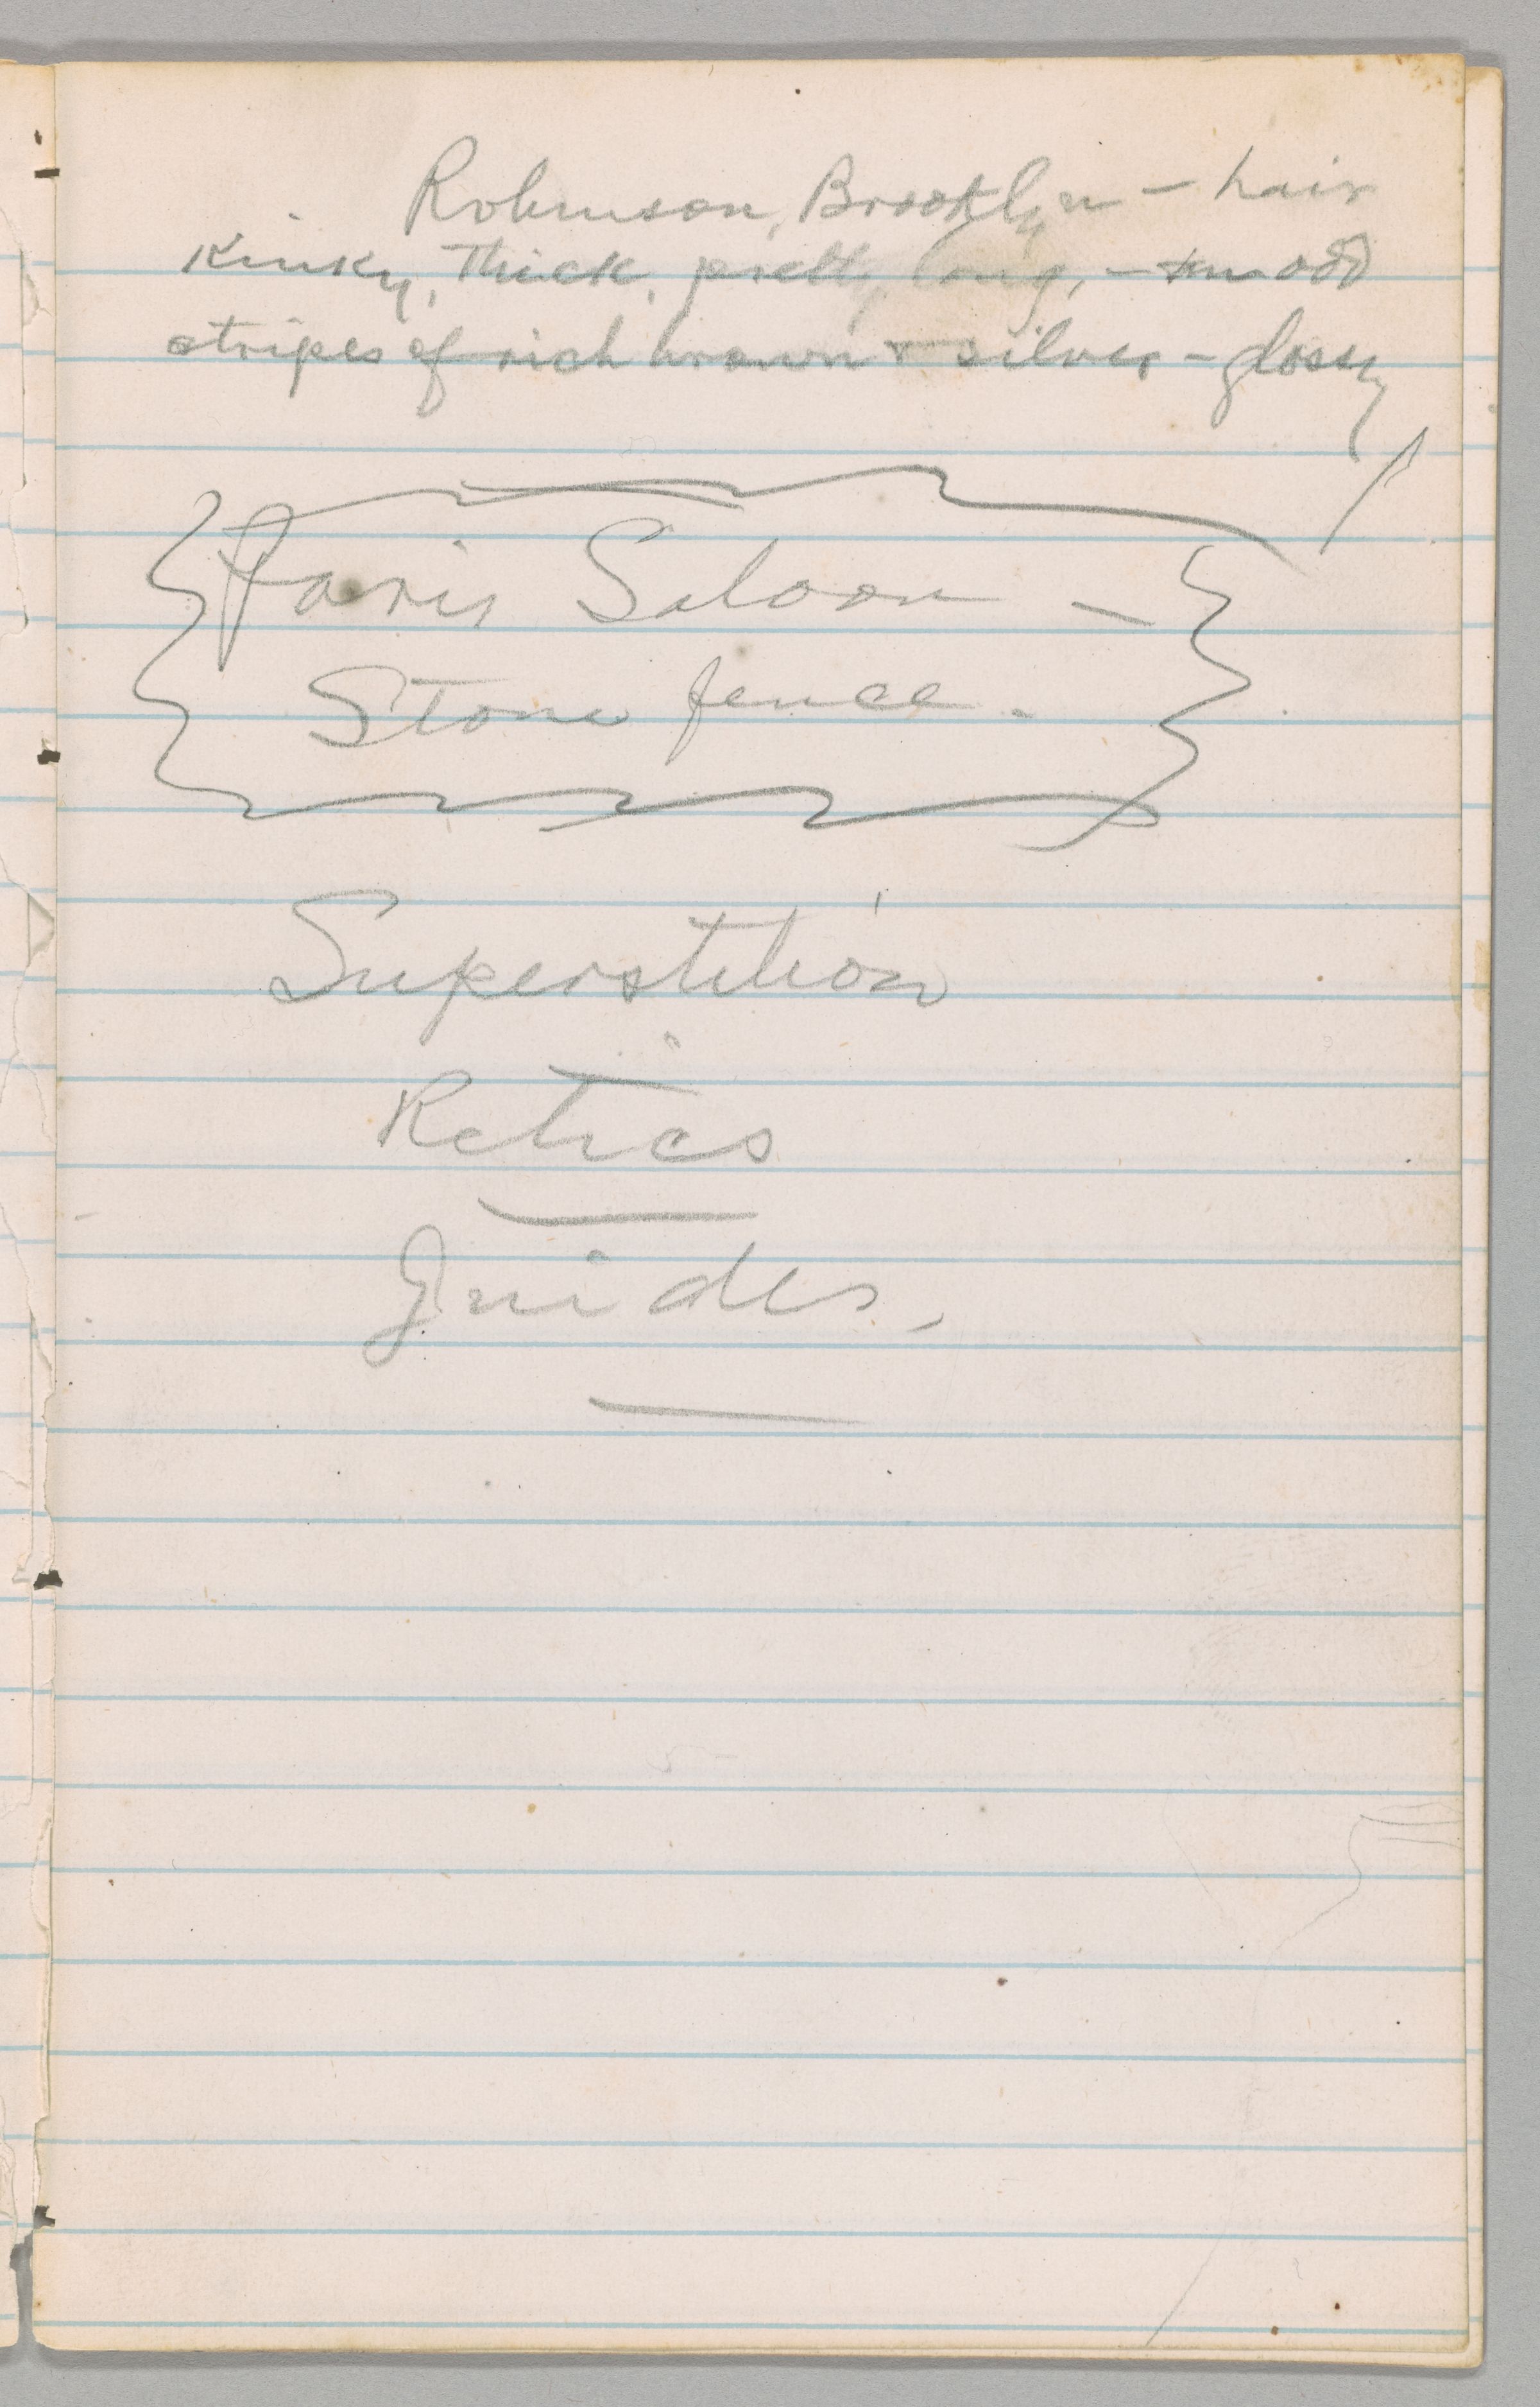 Robinson, Brooklyn – hair
kinky, thick, pretty long, – odd
stripes of rich brown & silver – glossy
Paris Saloon –
Stone fence.
Superstition
Relics
Guides.